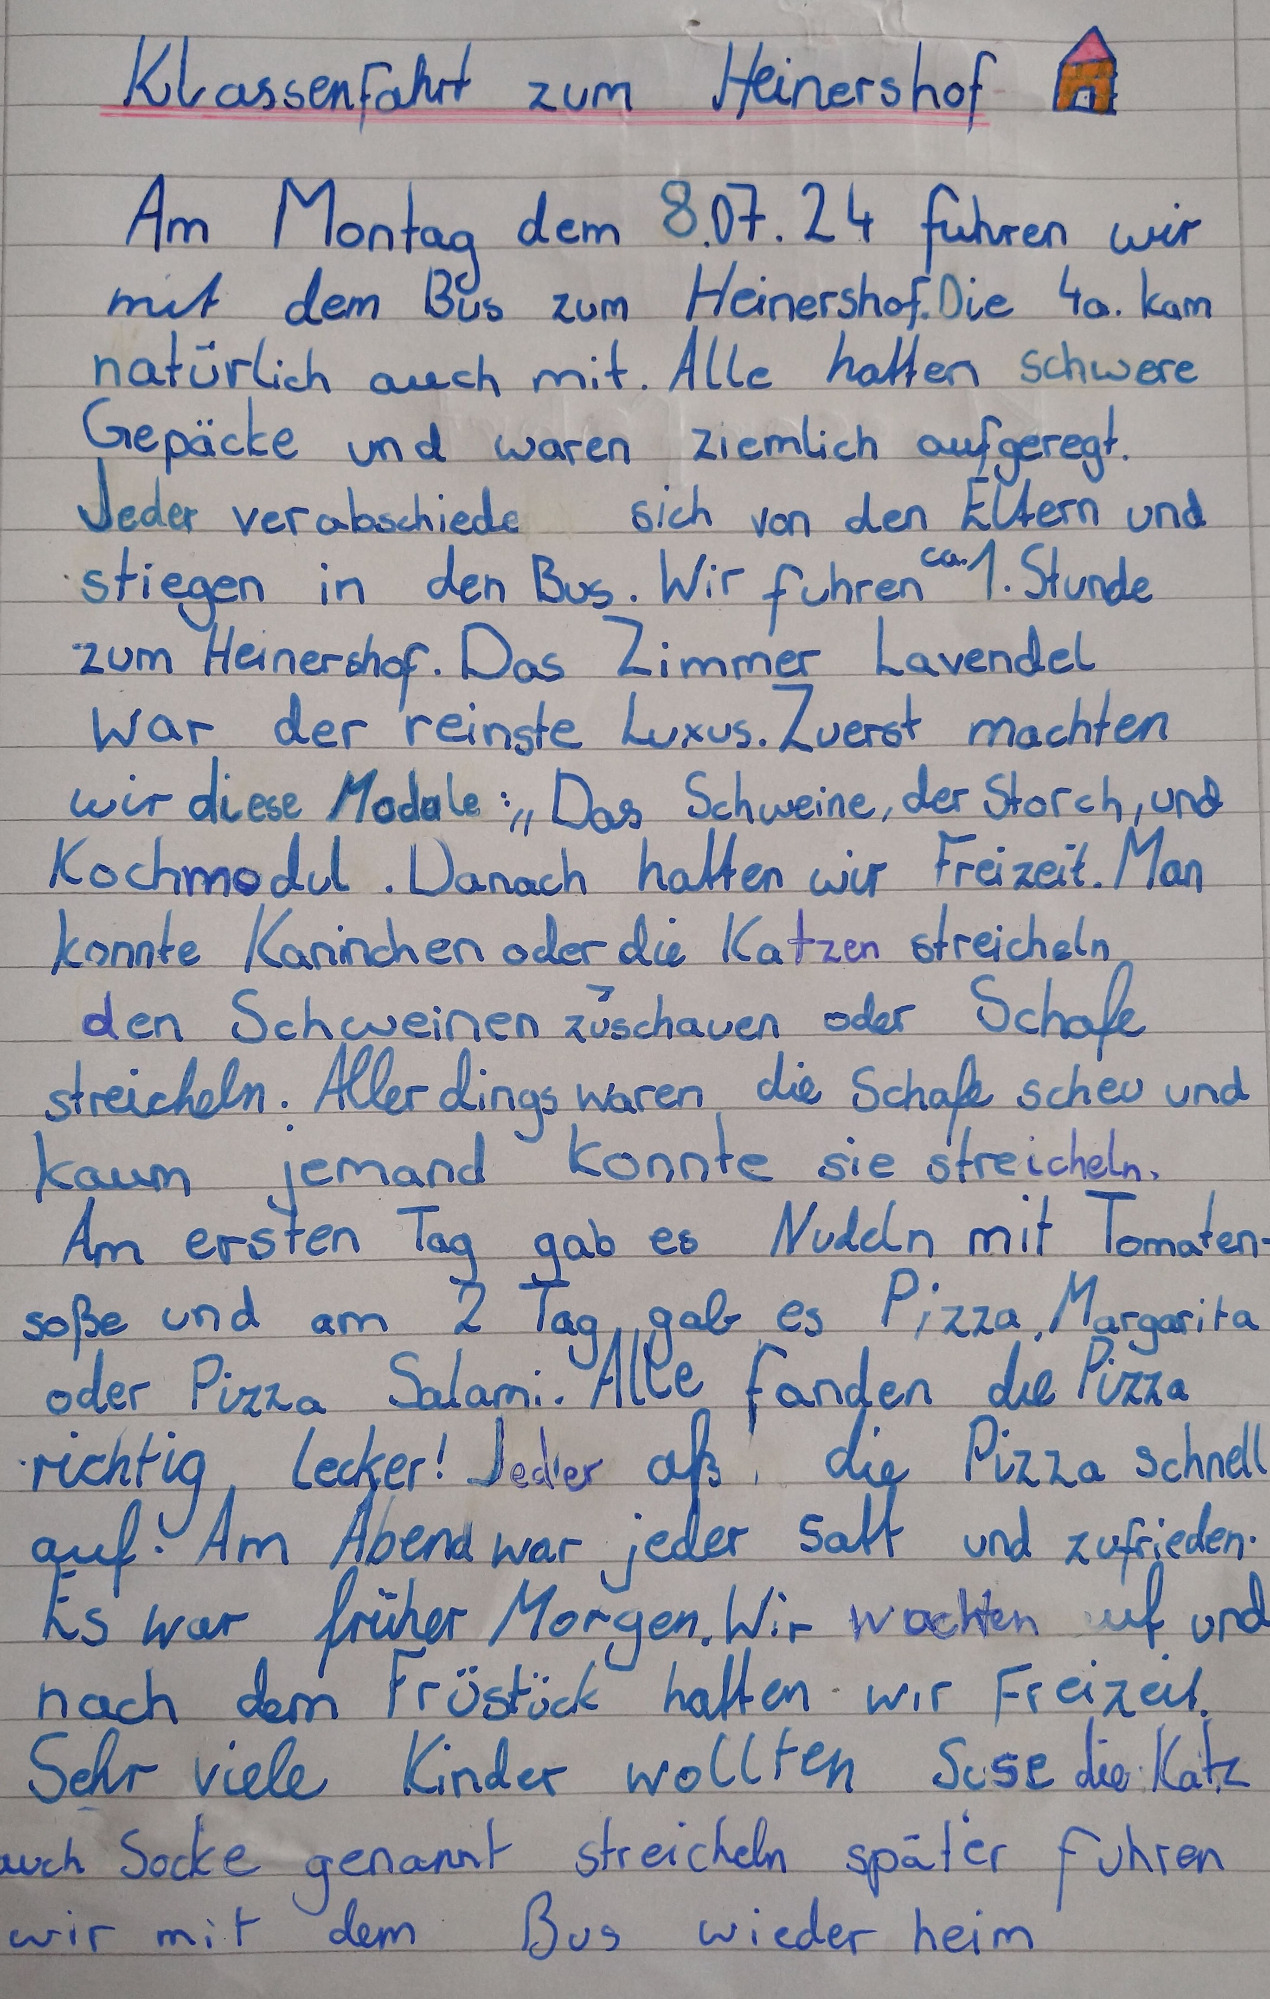 Klassenfahrt zum Heinershof
Am Montag dem 8.07.24 fuhren wir
mit dem Bus zum Heinershof. Die 4a. kam
natürlich auch mit. Alle hatten schwere
Gepäcke und waren ziemlich aufgeregt.
Jeder verabschiede sich von den Eltern und
stiegen in den Bus. Wir fuhren ca. 1. Stunde
zum Heinershof. Das Zimmer Lavendel
war der reinste Luxus. Zuerst machten
wir diese Module: „Das Schweine, der Storch, und
Kochmodul. Danach hatten wir Freizeit. Man
konnte Kaninchen oder die Katzen streicheln
den Schweinen zuschauen oder Schafe
streicheln. Allerdings waren die Schafe scheu und
kaum jemand konnte sie streicheln.
Am ersten Tag gab es Nudeln mit Tomaten-
soße und am 2 Tag gab es Pizza Margarita
oder Pizza Salami. Alle fanden die Pizza
richtig lecker! Jeder aß die Pizza schnell
auf. Am Abend war jeder satt und zufrieden.
Es war früher Morgen. Wir wachten auf und
nach dem Früstück hatten wir Freizeit.
Sehr viele Kinder wollten Suse die Katz
auch Socke genannt streicheln später fuhren
wir mit dem Bus wieder heim